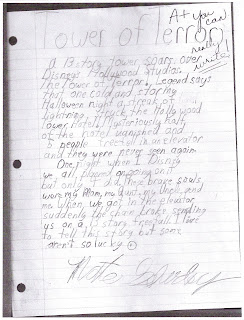 Tower of Terror
A+ you can really write!
a 13 story tower soars over
Disneys Hollywood Studios.
The tower of terror. Legend says
that one cold and stormy
Halloween night a streak of
lightning struck the hollywood
tower Hotell. Mysteriously half
of the hotel vanished and
5 people free fell in an elevator
and they were never seen again.
One night when I Disny
we all planed on going on it
but only 4 did. The brave souls
were my Mom, me, aunt, my Uncle, and
me. When we got in the elevator
suddenly the chain broke sending
us on a 13 story free fall. I live
to tell this story but some
aren't so lucky